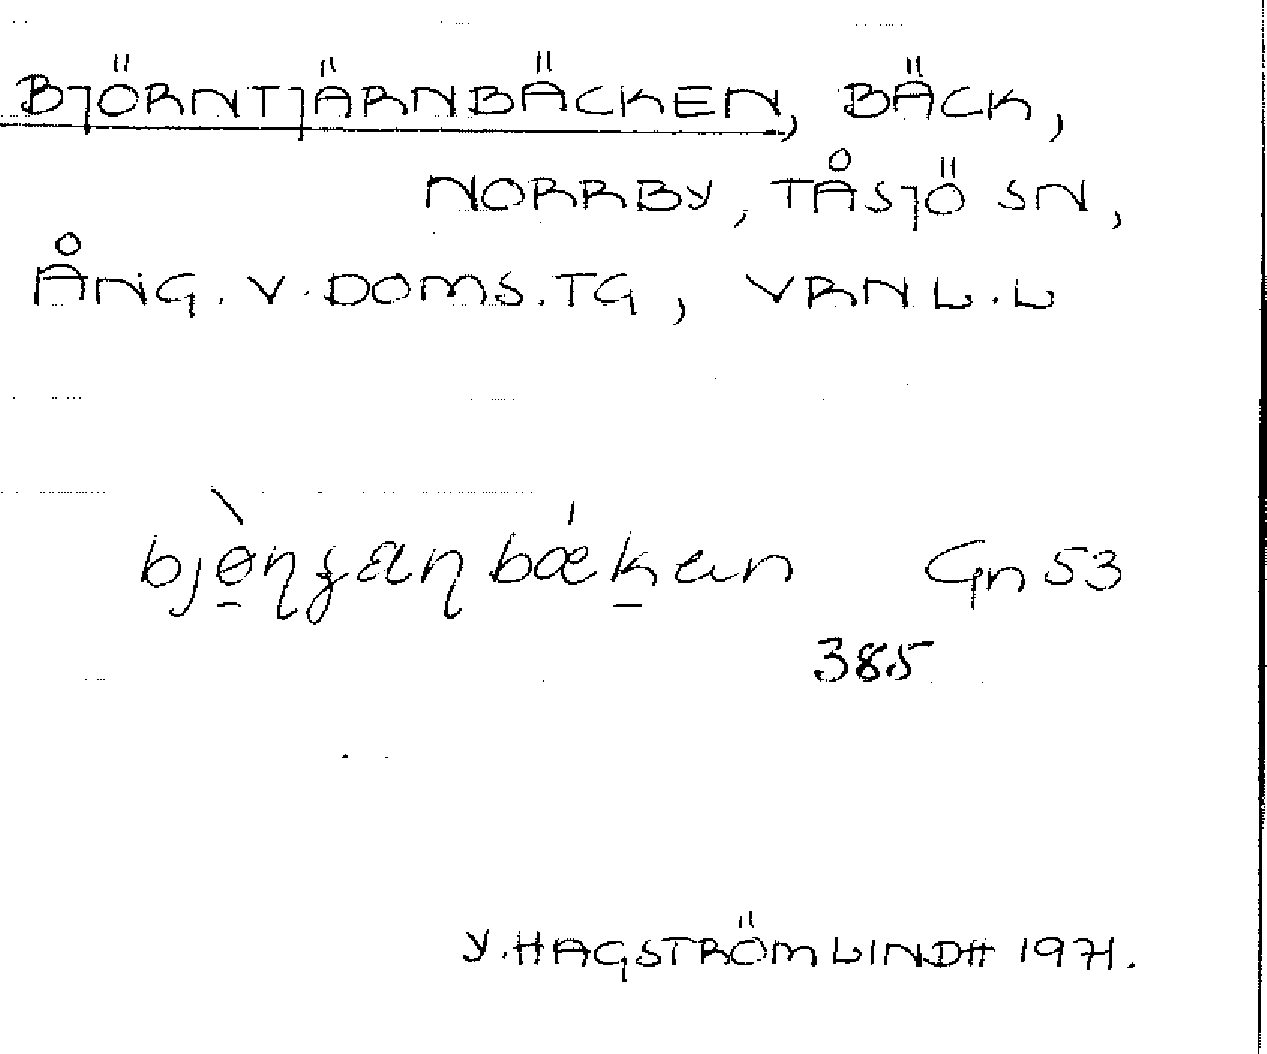 BJÖRNTJÄRNBÄCKEN, BÄCK,
NORRBY, TÅSJÖ SN,
ÅNG. V. DOMS. TG, VRNL. L
Gn 53
385
Y. HAGSTRÖM LINDH 1971.